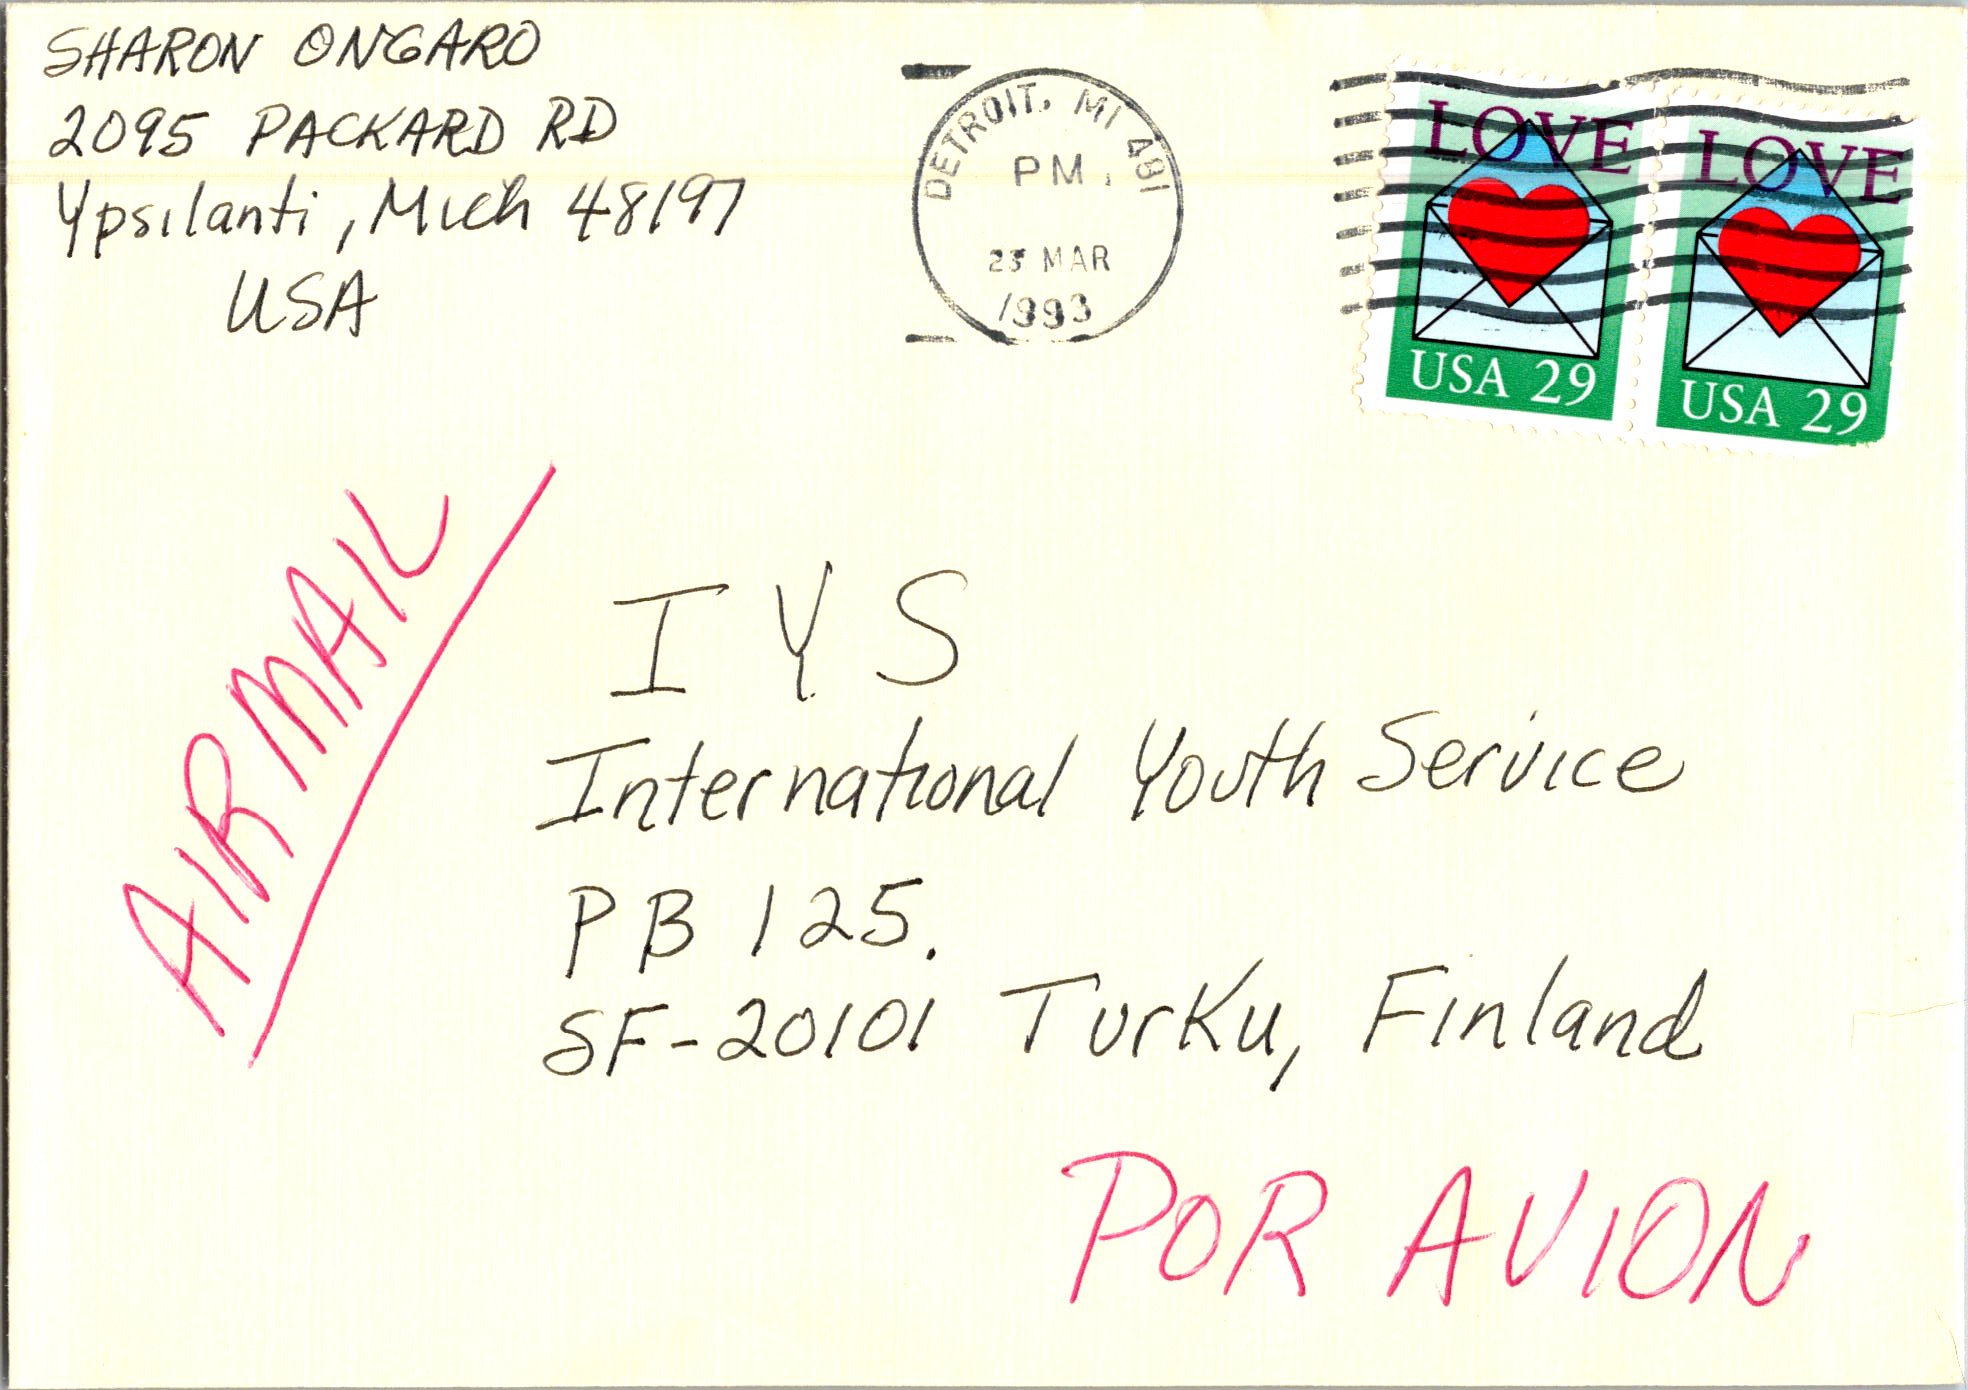 SHARON ONGARO
2095 PACKARD RD
Ypsilanti, Mich 48197
USA
DETROIT, MI 481
PM
MAR
1993
LOVE
USA 29
LOVE
USA 29
AIRMAIL
I Y S
International Youth Service
PB 125.
SF-20101 Turku, Finland
POR AVION